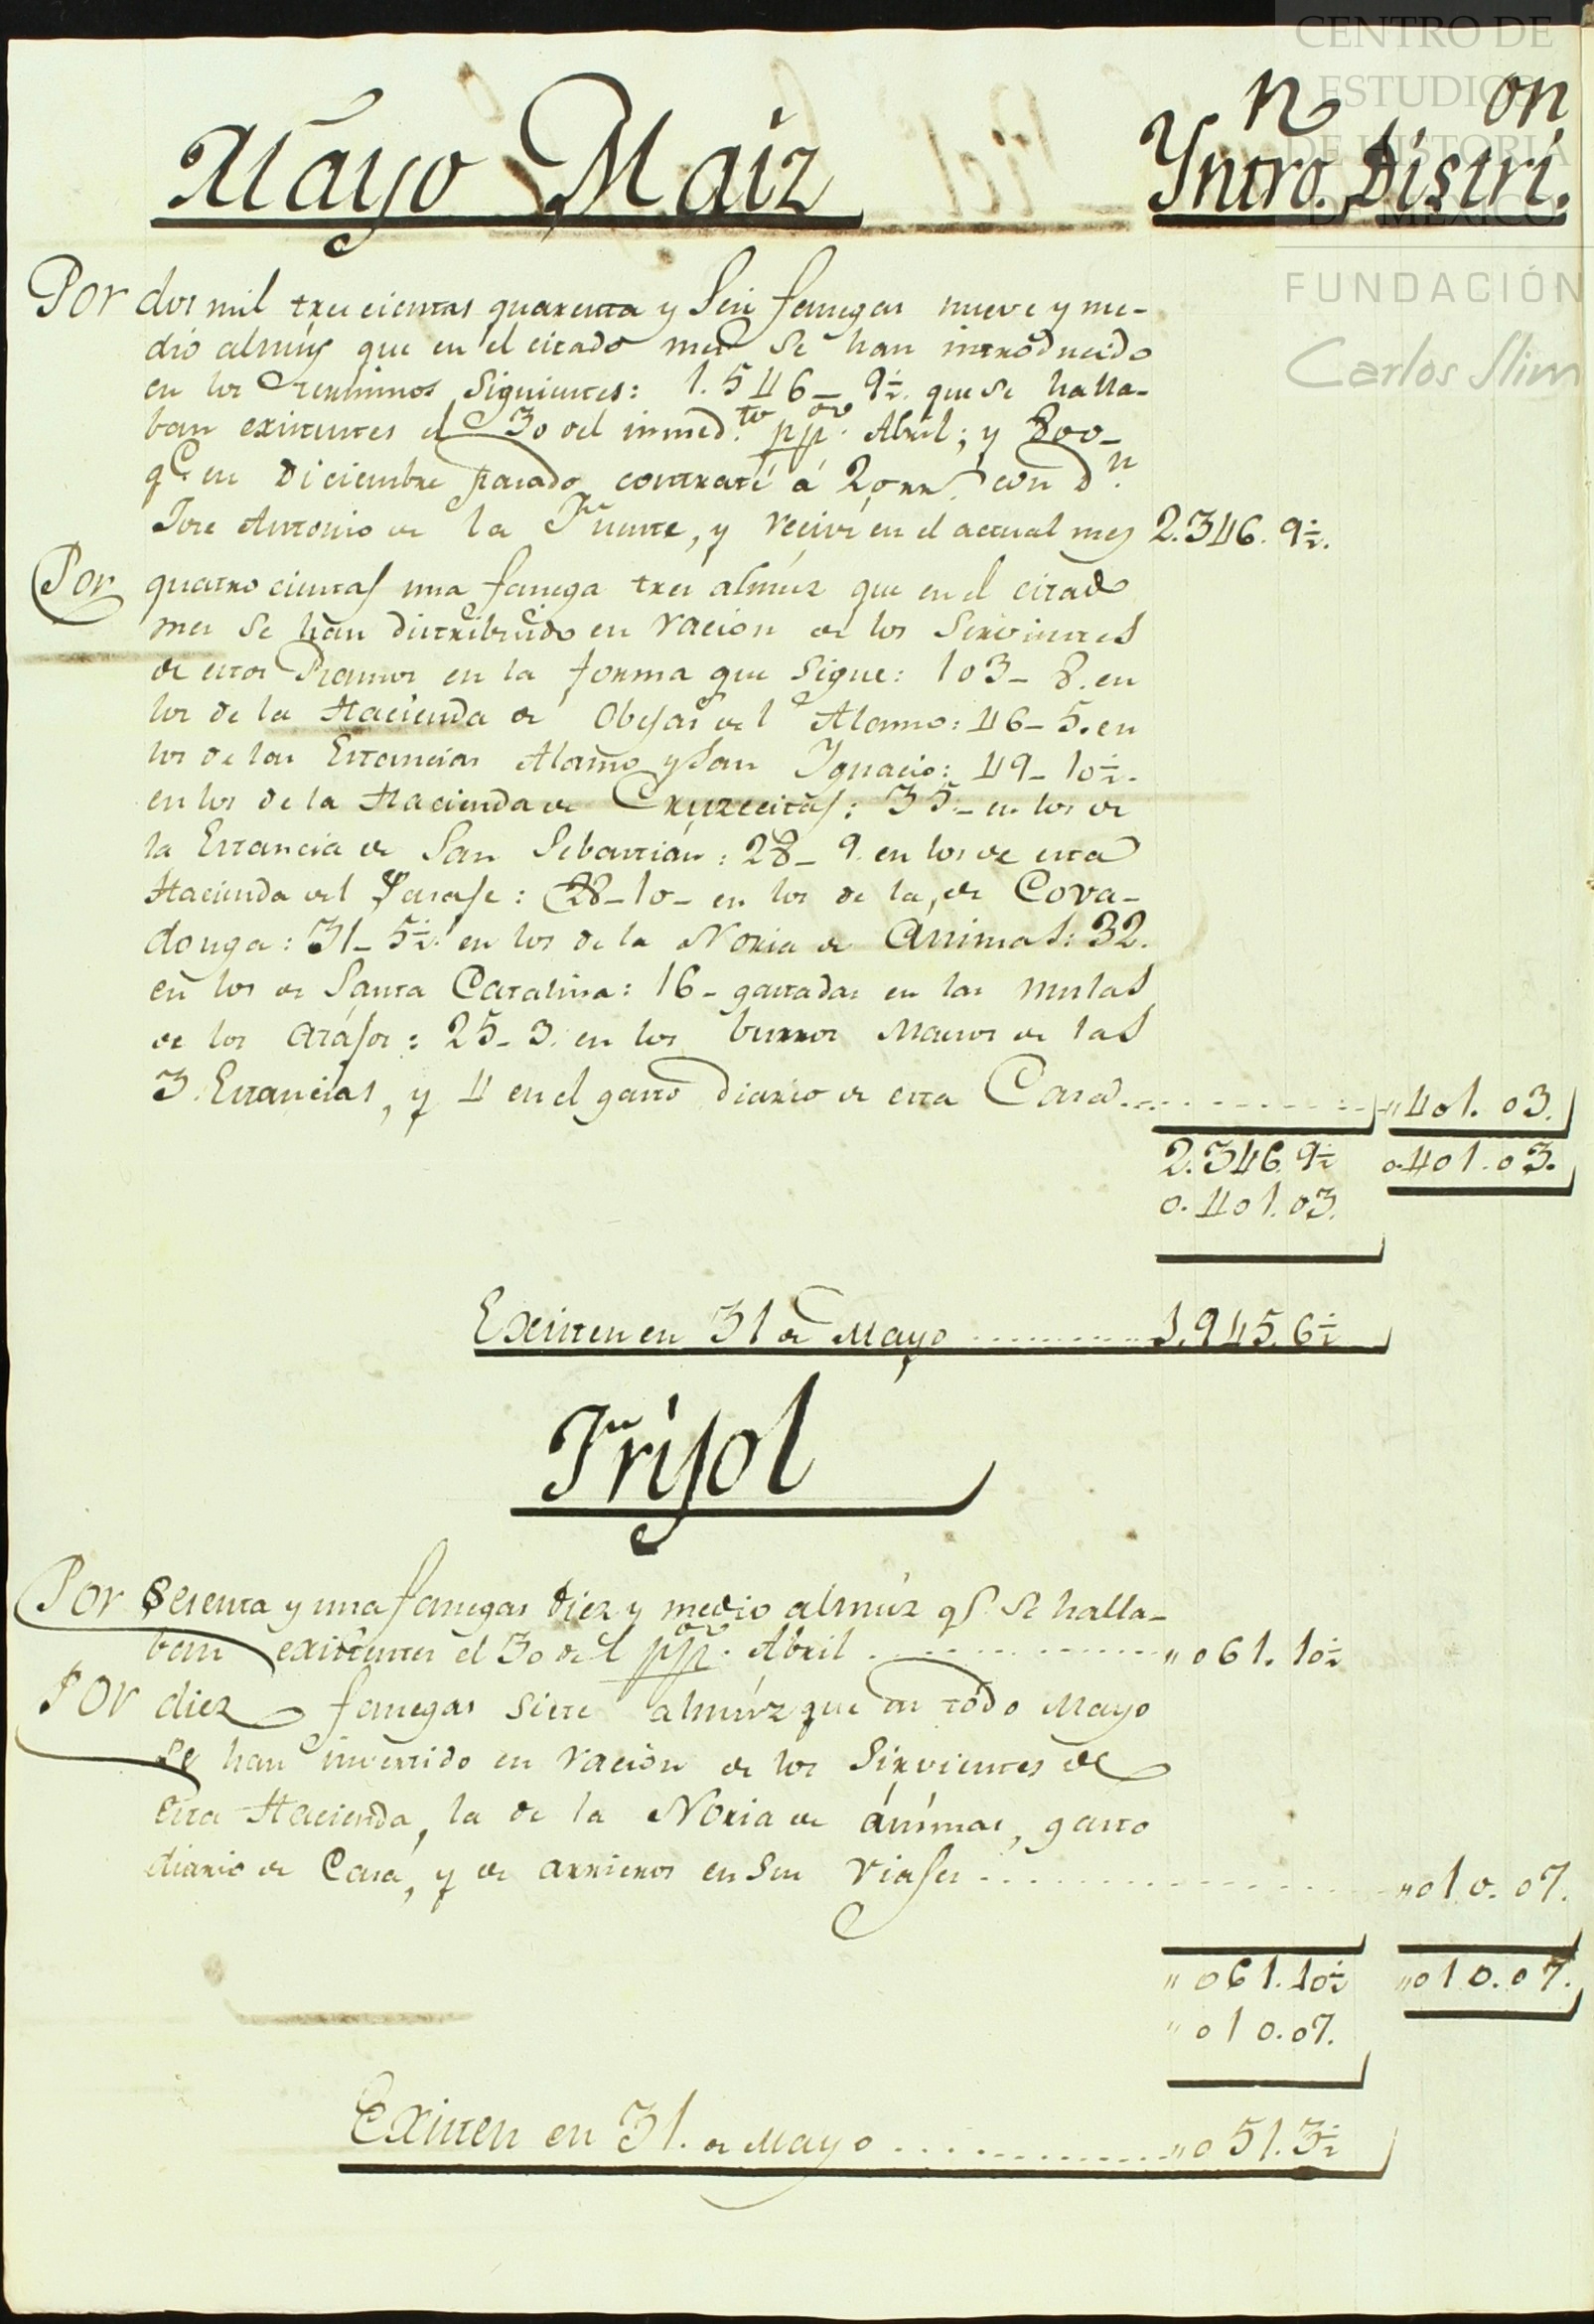 CENTRO DE
ESTUDIOS
DE HISTORIA
DE MEXICO
FUNDACIÓN
Carlos Slim
Mayo Maiz Yntro.n Distri.on
Por dos mil trescientas quarenta y seis fanegas nueve y me-
dio almúz que en el citado mes se han introducido
en los terminos siguientes: 1.546_ 9½. que se halla-
ban existentes el 30 del inmed.to ppo. Abril; y 800_
qe. en Diciembre pasado contraté á 20 rrs. con Dn.
Jose Antonio de la Fuente, y reciví en el actual mes 2.346. 9½.
Por quatrocientas una fanega tres almúz que en el citado
mes se han distribuido en racion de los Sirvientes
de estos Ramos en la forma que sigue: 103_ 8. en
los de la Hacienda de Obejas del Alamo: 46_ 5. en
los de las Estancias Alamo y San Ygnacio: 49_ 10½.
en los de la Hacienda de Cruzecitas: 35_ en los de
la Estancia de San Sebastián: 28_ 9. en los de esta
Hacienda del : 28_10_ en los de la, de Cova-
donga: 31_ 5½. en los de la Noria de Animas: 32.
en los de Santa Catalina: 16_ gastadas en las mulas
de los atájos: 25_ 3. en los burros Maeros de las
3. Estancias, y 4 en el gasto diario de esta Casa ......... " 401. 03.
2.346. 9½ 0.401.03.
0.401.03.
Existen en 31 de Mayo ........... 1.945.6½
Frijol
Por sesenta y una fanegas diez y medio almúz qe. se halla-
ban existentes el 30 del ppo. Abril ............ " 061. 10½
Por diez fanegas siete almúz que en todo Mayo
se han invertido en racion de los Sirvientes de
esta Hacienda, la de la Noria de ánimas, gasto
diario de Casa, y de arrieros en sus viajes ............ " 010. 07.
" 061. 10½ " 010. 07.
" 010. 07.
Existen en 31. de Mayo ............ " 051. 3½